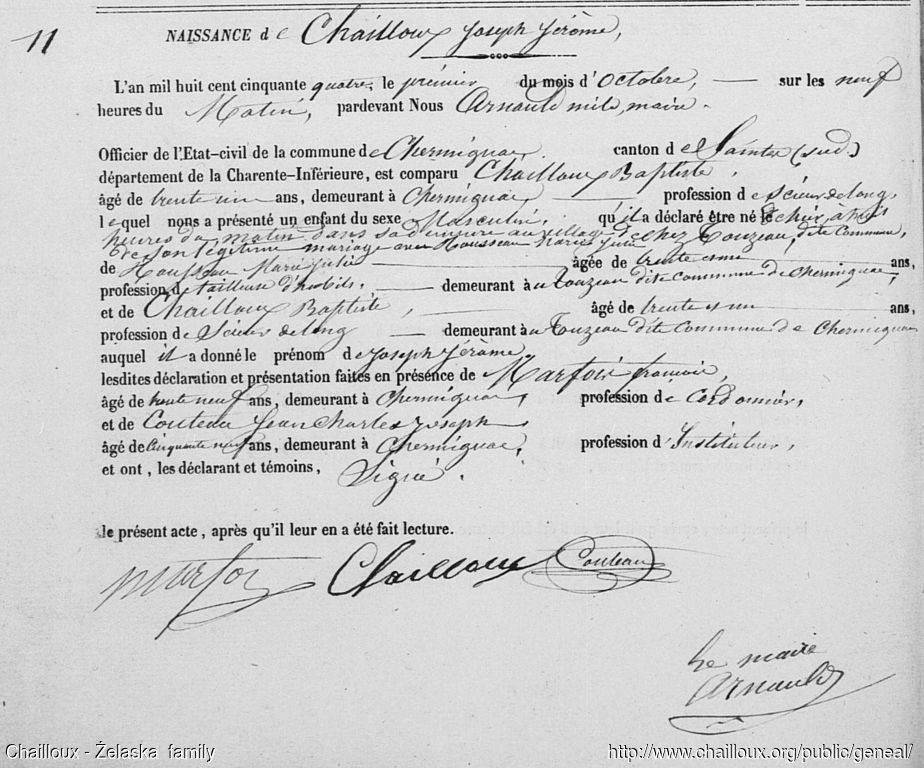 11
NAISSANCE de Chailloux Joseph Jérôme,
L'an mil huit cent cinquante quatre le premier du mois d'Octobre, sur les neuf
heures du Matin, pardevant Nous Arnauld mils, maire.
Officier de l'Etat-civil de la commune de Chermignac, canton de Saintes (sud.)
département de la Charente-Inférieure, est comparu Chailloux Baptiste,
âgé de trente un ans, demeurant à Chermignac, profession de Scieur de long,
lequel nous a présenté un enfant du sexe Masculin, qu'il a déclaré être né
heures du matin dans sa demeure au village de chez Touzeau, dite Commune,
de son légitime mariage avec Housseau Marie Julie
de Housseau Marie Julie âgée de trente ans,
profession de tailleuse d'habits, demeurant à Touzeau dite commune de Chermignac,
et de Chailloux Baptiste, âgé de trente un ans,
profession de Scieur de long demeurant à Touzeau dite Commune de Chermignac
auquel il a donné le prénom de Joseph Jérôme,
lesdites déclaration et présentation faites en présence de Marfois françois,
âgé de trente neuf ans, demeurant à Chermignac, profession de Cordonnier,
et de Couteau Jean Charles Joseph
âgé de Cinquante ans, demeurant à Chermignac, profession d'Instituteur,
et ont, les déclarant et témoins, Signé.
le présent acte, après qu'il leur en a été fait lecture.
Marfois Chailloux Couteau
Le maire
Arnauld
Chailloux - Želaska family http://www.chailloux.org/public/geneal/